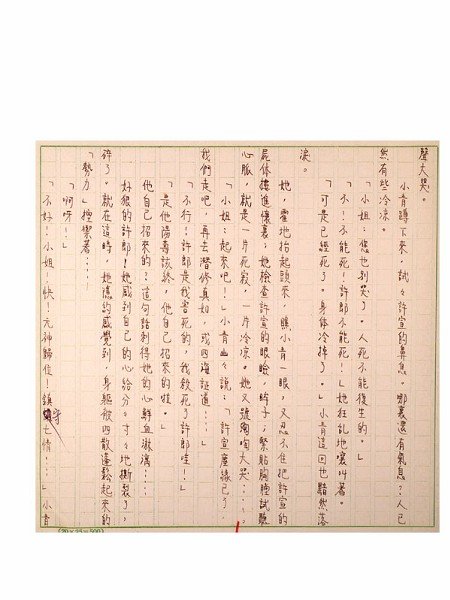 聲大哭。
小青蹲下來，試々許宣的鼻息。那裏還有氣息？人已
然有些冷涼。
「小姐！您也別哭了。人死不能復生的。」
「不！不能死！許郎不能死！」她狂亂地嚷叫著。
「可是已經死了。身体冷掉了。」小青這回也黯然落
淚。
她，霍地抬起頭來，瞧小青一眼，又忍不住把許宣的
屍体摟進懷裏；她檢查許宣的眼瞼，眸子；緊貼胸膛試聽
心脈，就是一片死寂，一片冷凉。她又號啕大哭……，
「小姐：起來吧！」小青幽々說：「許宣塵緣已了，
我們走吧，再去潛修真如，或四海証道……」
「不行！許郎是我害死的，我救死了許郎哇！」
「是他陽壽該終，他自己招來的技。」
他自己招來的？這句話刺得她的心鮮血淋漓……
好狠的許郎！她感到自己的心給分々寸々地撕裂了，
碎了。就在這時，她德的感覺到，身軀被四散蓬鬆起來的
「勢力」擅禦著……
「啊呀！」
「不好！小姐！快！元神歸位！鎮守七情……」小青
(20×25=500)